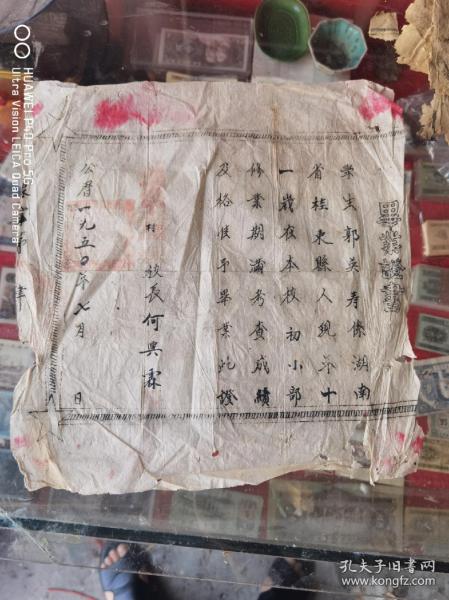 畢業證書
學生郭英壽係湖南
省桂東縣人現年十
一歲在本校初小部
修業期滿考查成績
及格准予畢業此證
校長何興霖
公曆一九五〇年七月 日
HUAWEI P40 Pro 5G
Ultra Vision LEICA Quad Camera
孔夫子旧书网
www.kongfz.com